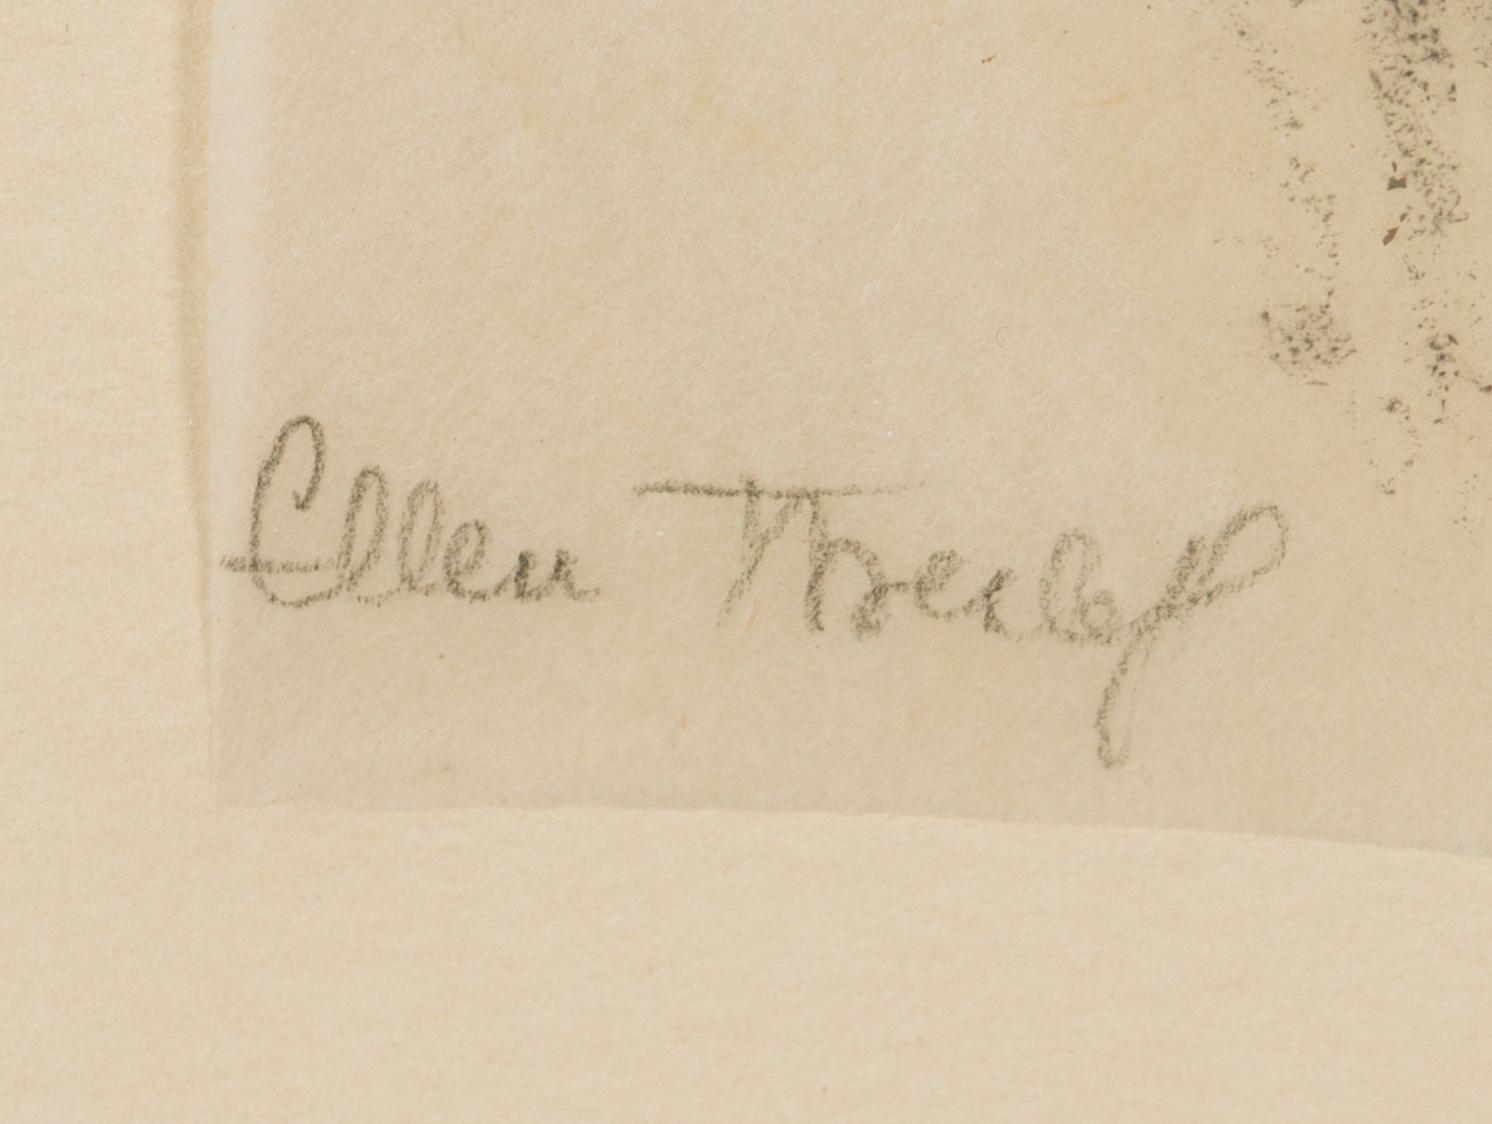 Ellen Thesleff